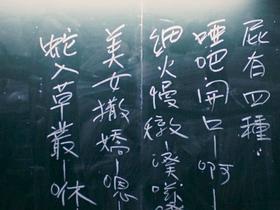 屁有四種:
啞吧開口—啊
細火慢燉—濮
美女撒嬌—嗯
蛇入草叢—咻